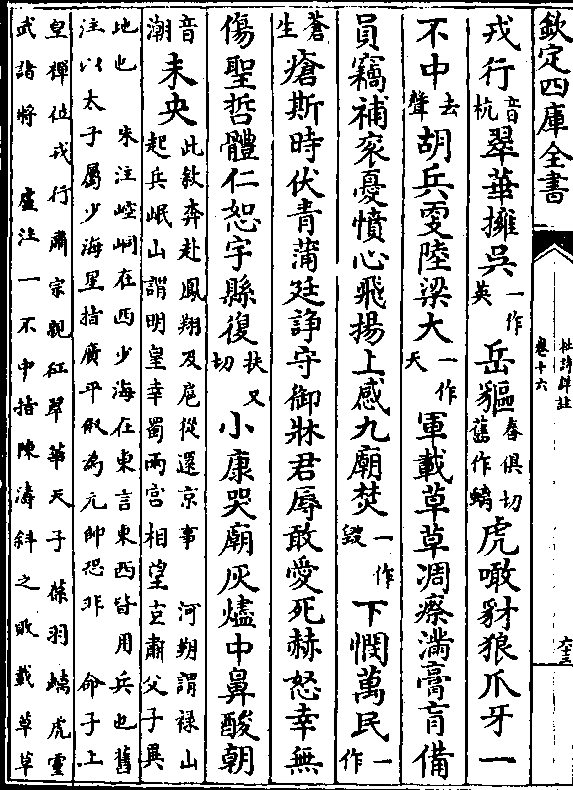 欽定四庫全書
杜詩詳註
卷十六
戎行音杭翠華擁吳一作英岳貙舂俱切舊作螭虎噉豺狼爪牙一
不中去聲胡兵更陸梁大一作天軍載草草凋瘵滿膏肓備
員竊補衮憂憤心飛揚上感九廟焚一作毁下憫萬民一作
蒼生瘡斯時伏青蒲廷諍守御牀君辱敢愛死赫怒幸無
傷聖哲體仁恕宇縣復扶又切小康哭廟灰燼中鼻酸朝
音潮未央
此敘奔赴鳳翔及扈從還京事 河朔謂祿山
起兵岷山謂明皇幸蜀兩宫相望言肅父子異
地也 朱注崆峒在西少海在東言東西皆用兵也舊
注以太子屬少海星指廣平俶為元帥恐非 命子上
皇禪位戎行肅宗親征翠華天子葆羽螭虎靈
武諸將 盧注一不中指陳濤斜之敗載草草